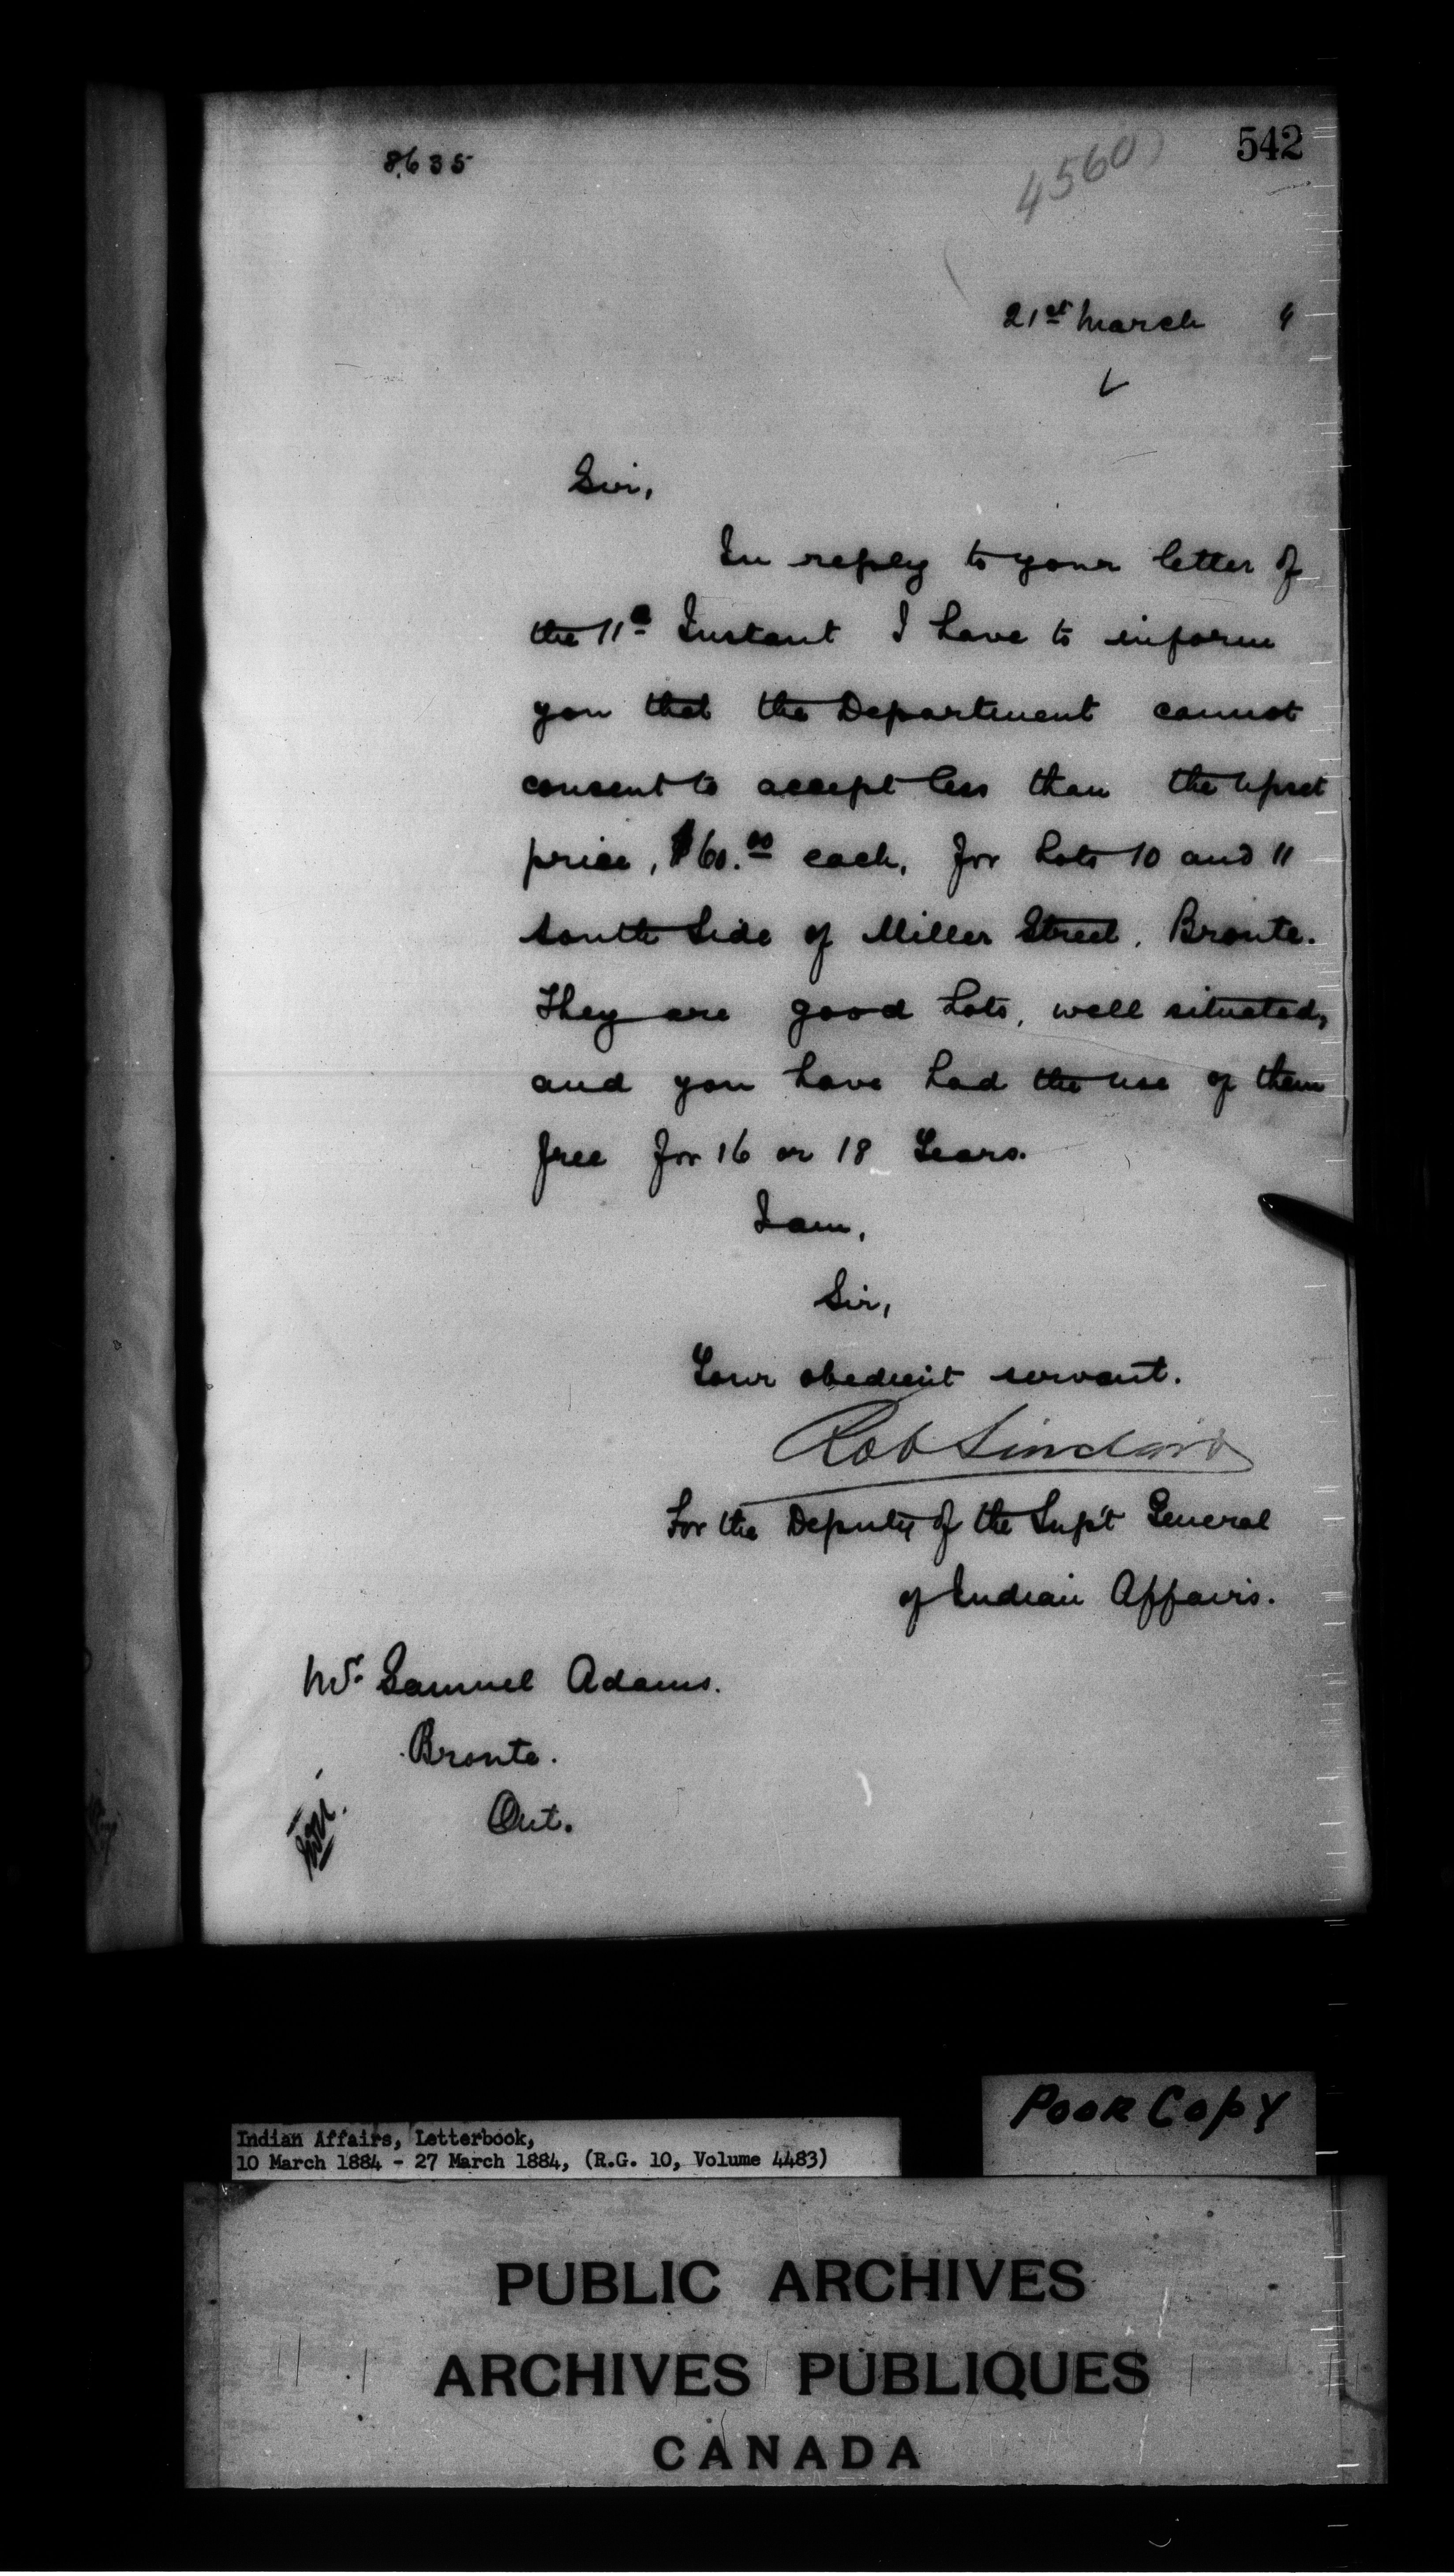 542
8635
4560
21st March 4
Sir,
In reply to your letter of
the 11th Instant I have to inform
you that the Department cannot
consent to accept less than the upset
price, $60.00 each, for Lots 10 and 11
South Side of Miller Street, Bronte.
They are good Lots, well situated,
and you have had the use of them
free for 16 or 18 Years.
I am,
Sir,
Your obedient servant.
Rob Sinclair
For the Deputy of the Sup't General
of Indian Affairs.
Mr. Samuel Adams.
Bronte.
Ont.
Poor Copy
Indian Affairs, Letterbook,
10 March 1884 - 27 March 1884, (R.G. 10, Volume 4483)
PUBLIC ARCHIVES
ARCHIVES PUBLIQUES
CANADA